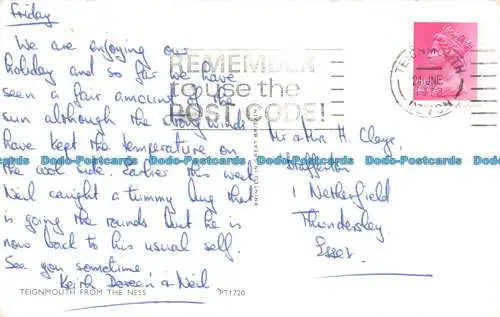 Friday
We are enjoying our
holiday and so far we have
seen a fair amount of the
sun although the strong winds
have kept the temperature on
the cool side. Earlier this week
Neil caught a tummy bug that
is going the rounds but he is
now back to his usual self.
See you sometime,
Keith Doreen & Neil
TEIGNMOUTH FROM THE NESS PT1720
REMEMBER
to use the
POST CODE!
TEIGNMOUTH
21 JNE
DEVON
PRINTED IN GREAT BRITAIN
Mr & Mrs H.
1 Netherfield
Thundersley
Essex.
Dodo-Postcards Dodo-Postcards Dodo-Postcards Dodo-Postcards